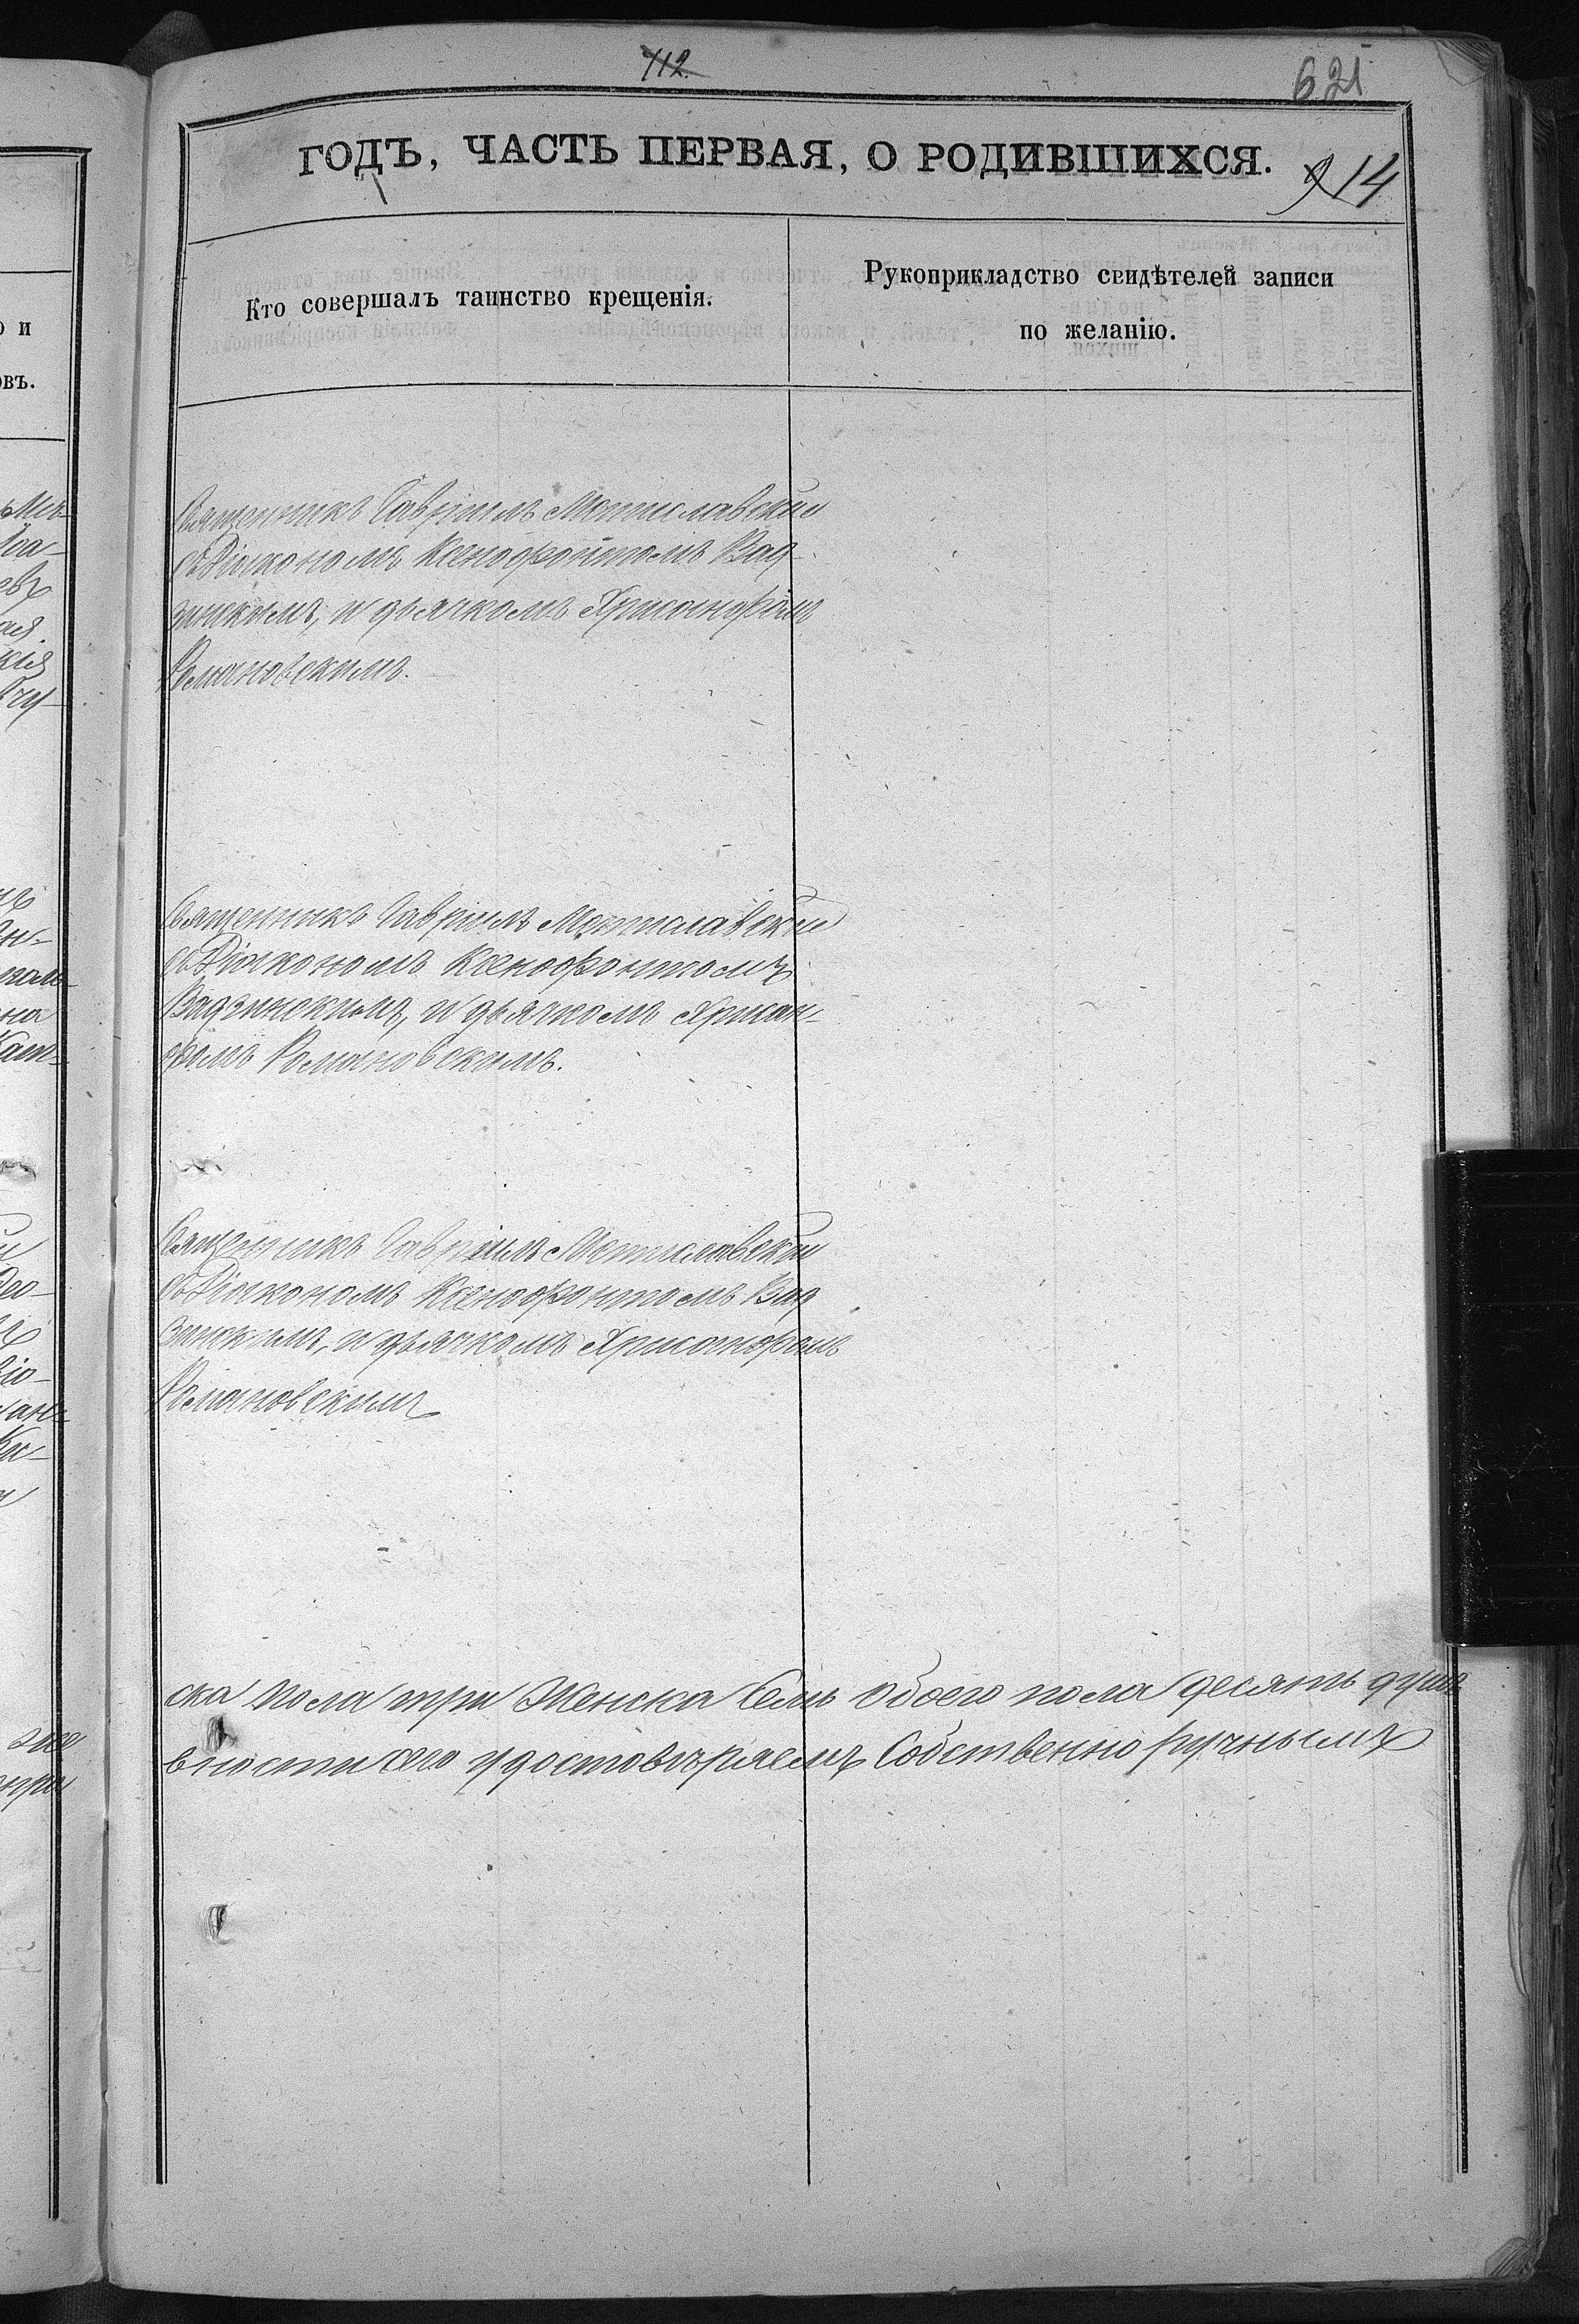 112.
621
ГОДЪ, ЧАСТЬ ПЕРВАЯ, О РОДИВШИХСЯ.
14
Кто совершалъ таинство крещенія.
Рукоприкладство свидѣтелей записи
по желанію.
Священникъ Гавріилъ Мстиславскій
съ Діакономъ Ксенофонтомъ Вад-
зинскимъ, и дьячкомъ Хрисанфомъ
Романовскимъ.
Священникъ Гавріилъ Мстиславскій
съ Діакономъ Ксенофонтомъ
Вадзинскимъ, и дьячкомъ Хрисан-
фомъ Романовскимъ.
Священникъ Гавріилъ Мстиславскій
съ Діакономъ Ксенофонтомъ Вад
зинскимъ, и дьячкомъ Хрисанфомъ
Романовскимъ
ска пола три Женска Семь Обоего пола десять душъ
вности сего удостовѣряемъ Собственноручнымъ